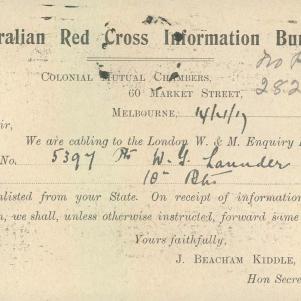 ralian Red Cross Information Bu
Colonial Mutual Chambers,
60 Market Street,
28.2
Melbourne, 14/4/17
ir,
We are cabling to the London W. & M. Enquiry
No. 5397 Pte W. G. Launder
18th Btn
nlisted from your State. On receipt of information
n, we shall, unless otherwise instructed, forward same
Yours faithfully,
J. Beacham Kiddle,
Hon Secre